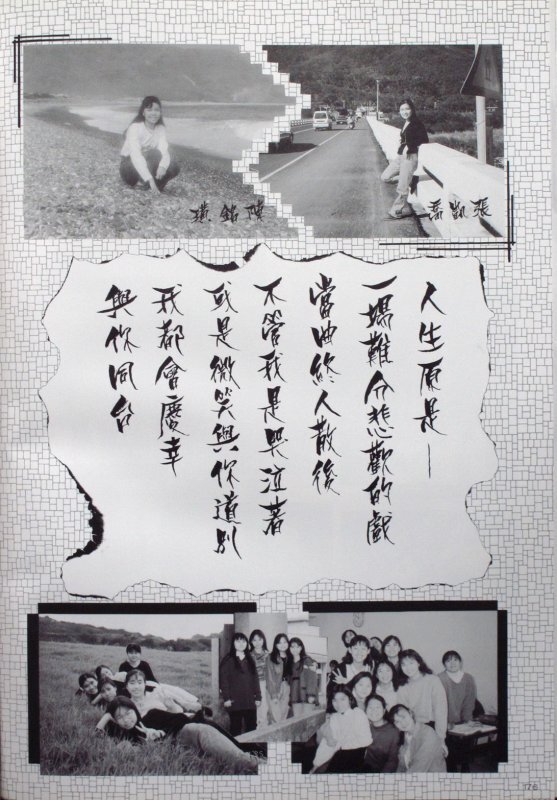 陳銘瑱
張凱喬
人生原是—
一場難分悲歡的戲
當曲終人散後
不管我是哭泣著
或是微笑與你道別
我都會慶幸
與你同台
176